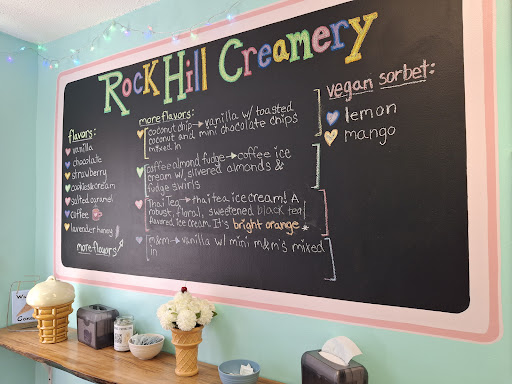 Rock Hill Creamery
flavors:
vanilla
chocolate
strawberry
cookies&cream
salted caramel
coffee
lavender honey
more flavors
more flavors:
coconut chip → vanilla w/ toasted
coconut and mini chocolate chips
mixed in
coffee almond fudge → coffee ice
cream w/ slivered almonds &
fudge swirls
Thai Tea → thai tea ice cream! A
robust, floral, sweetened black tea
flavored ice cream. It's bright orange
m&m → vanilla w/ mini m&m's mixed
in
vegan sorbet:
lemon
mango